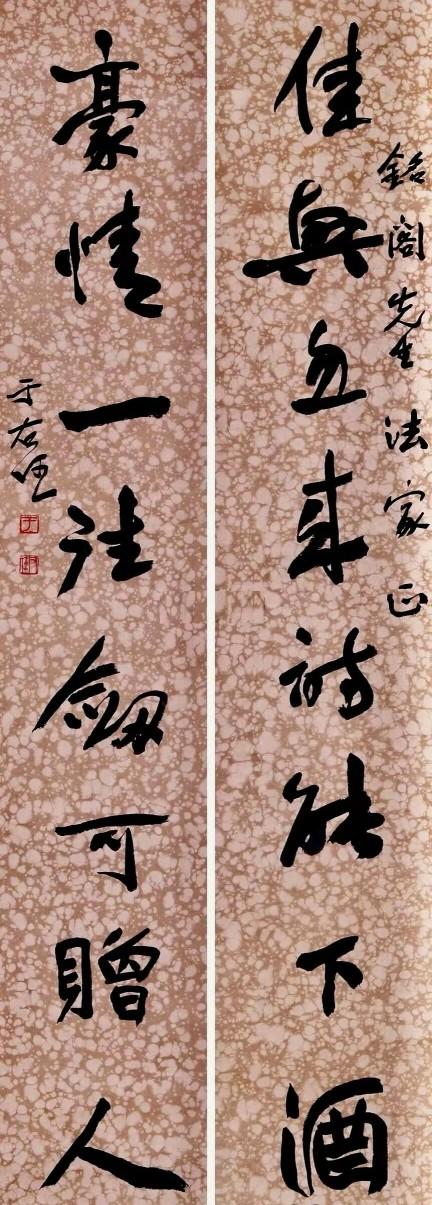 銘閣先生法家正
佳興忽來詩能下酒
豪情一往劒可贈人
于右任